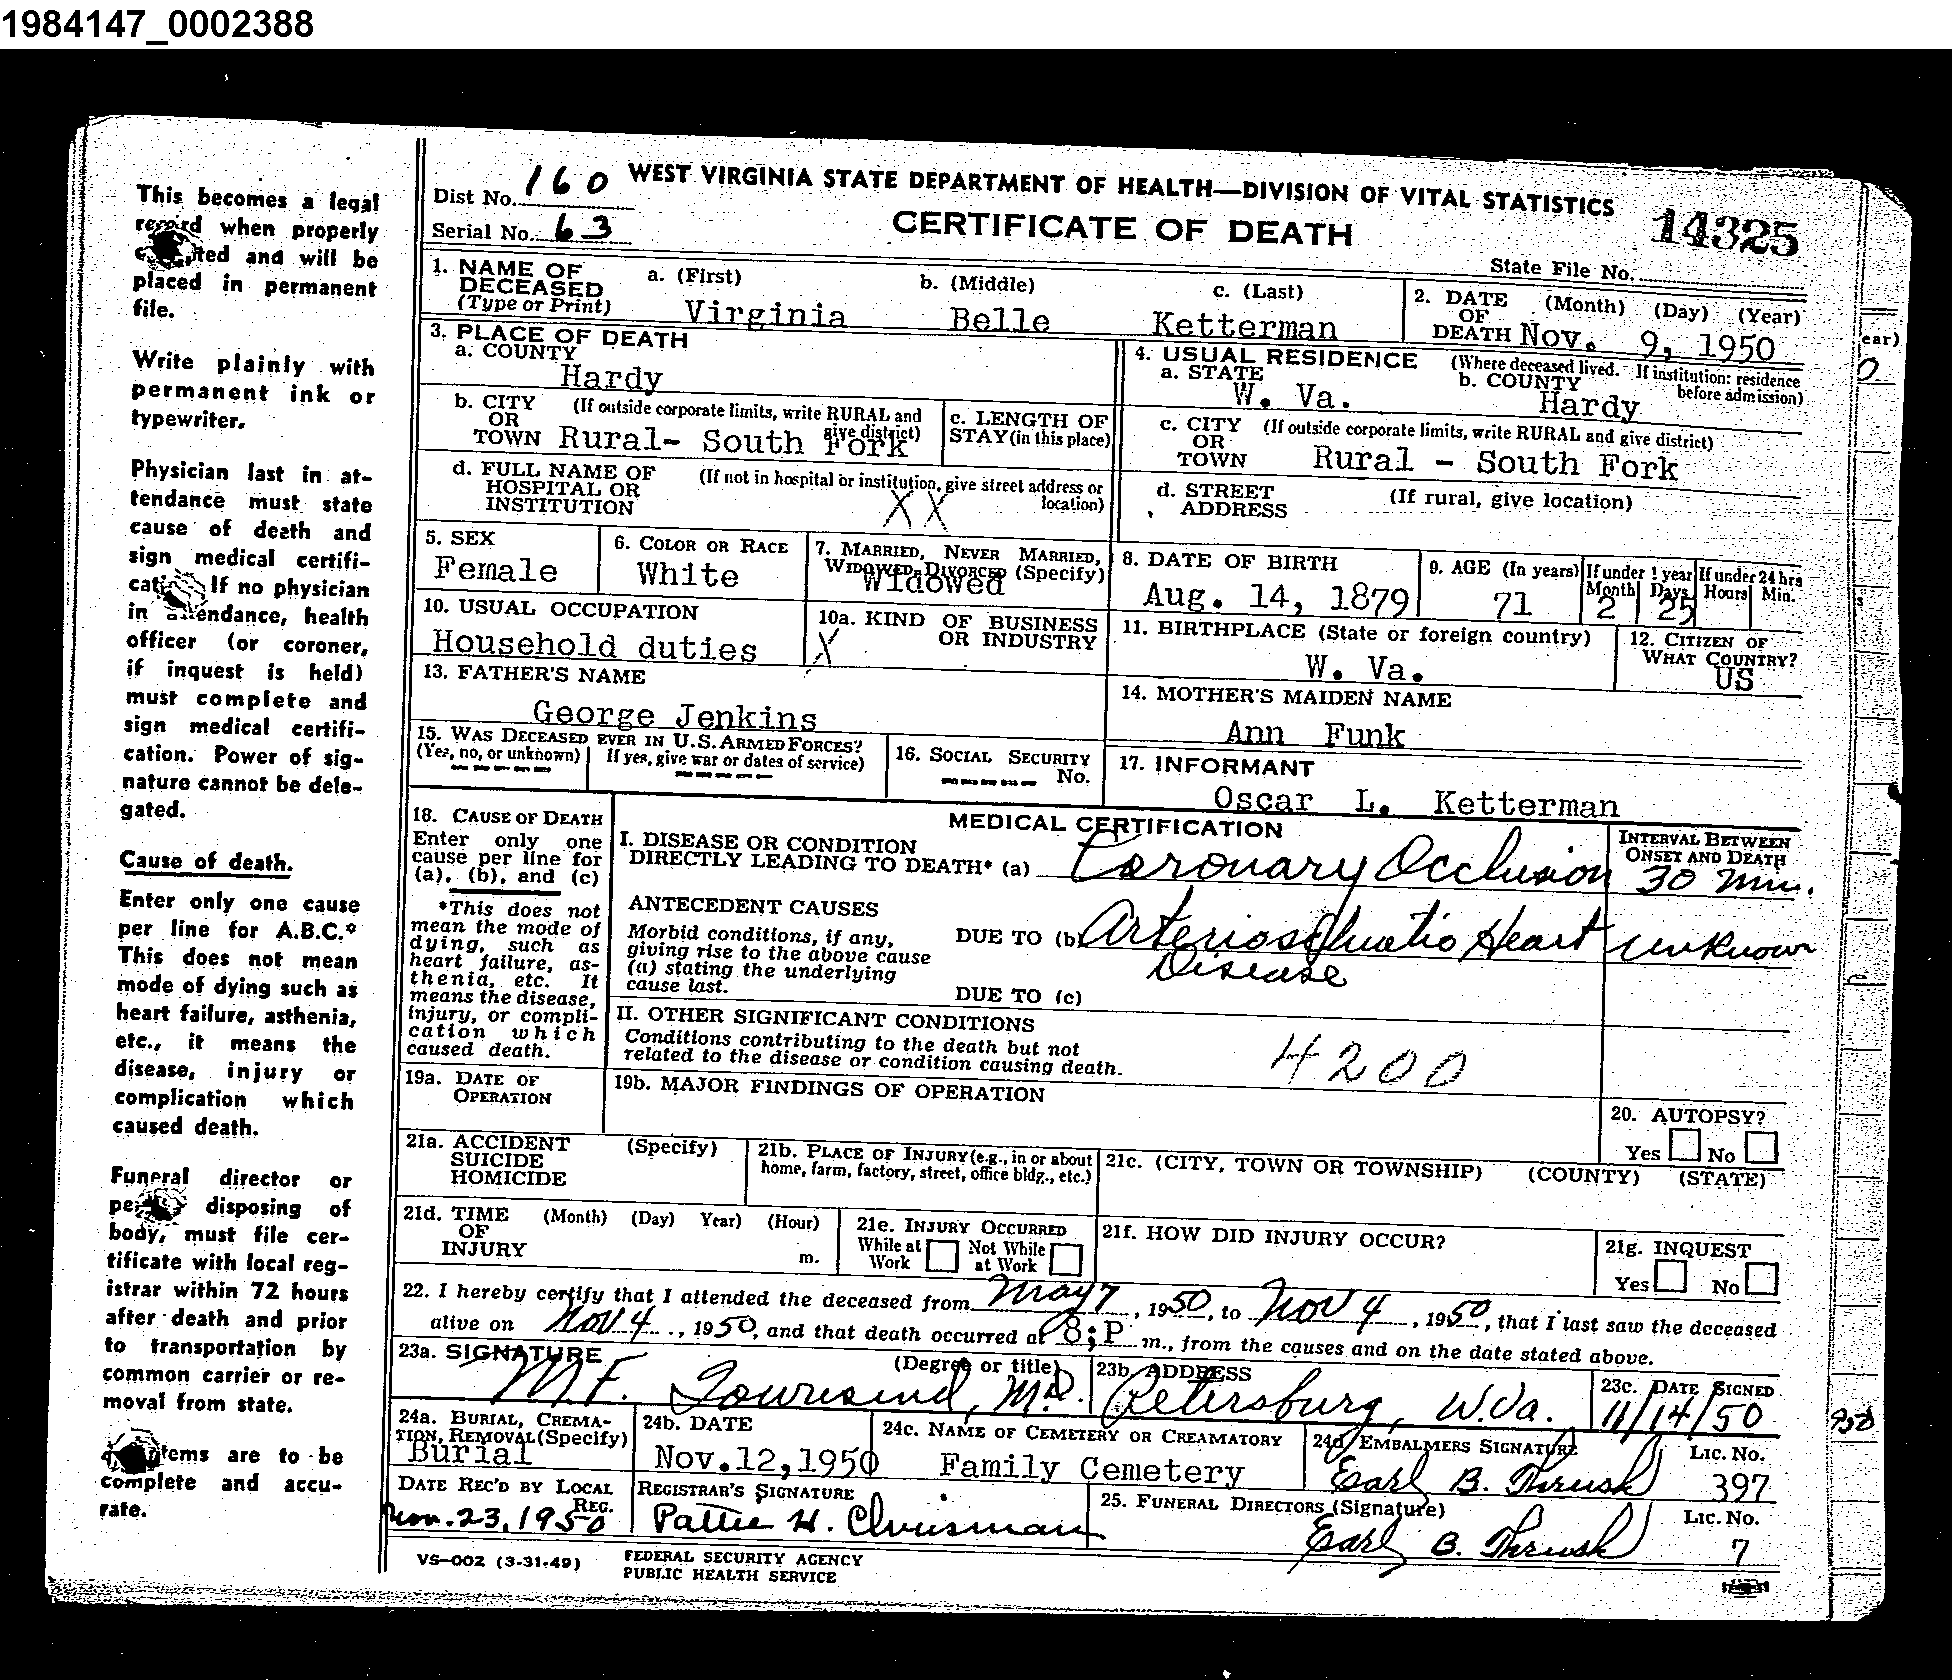 1984147_0002388
This becomes a legal
record when properly
and will be
placed in permanent
file.
Write plainly with
permanent ink or
typewriter.
Physician last in at-
tendance must state
cause of death and
sign medical certifi-
If no physician
in
health
officer (or coroner,
if inquest is held)
must complete and
sign medical certifi-
cation. Power of sig-
nature cannot be dele-
gated.
Cause of death.
Enter only one cause
per line for A.B.C.*
This does not mean
mode of dying such as
heart failure, asthenia,
etc., it means the
disease, injury or
complication which
caused death.
Funeral director or
disposing of
body, must file cer-
tificate with local reg-
istrar within 72 hours
after death and prior
to transportation by
common carrier or re-
moval from state.
are to be
complete and accu-
rate.
Dist No. 160 WEST VIRGINIA STATE DEPARTMENT OF HEALTH—DIVISION OF VITAL STATISTICS
Serial No. 63 CERTIFICATE OF DEATH 14325
State File No.
1. NAME OF DECEASED (Type or Print) a. (First) b. (Middle) c. (Last)
Virginia Belle Ketterman
2. DATE OF DEATH (Month) (Day) (Year)
Nov. 9, 1950
3. PLACE OF DEATH
a. COUNTY
Hardy
4. USUAL RESIDENCE (Where deceased lived. If institution: residence before admission)
a. STATE b. COUNTY
W. Va. Hardy
b. CITY OR TOWN (If outside corporate limits, write RURAL and give district)
Rural- South Fork
c. LENGTH OF STAY (in this place)
c. CITY OR TOWN (If outside corporate limits, write RURAL and give district)
Rural - South Fork
d. FULL NAME OF HOSPITAL OR INSTITUTION (If not in hospital or institution, give street address or location)
XX
d. STREET ADDRESS (If rural, give location)
5. SEX
Female
6. COLOR OR RACE
White
7. MARRIED, NEVER MARRIED, WIDOWED, DIVORCED (Specify)
Widowed
8. DATE OF BIRTH
Aug. 14, 1879
9. AGE (In years) If under 1 year Month Days If under 24 hrs Hours Min.
71 2 25
10. USUAL OCCUPATION
Household duties
10a. KIND OF BUSINESS OR INDUSTRY
X
11. BIRTHPLACE (State or foreign country)
W. Va.
12. CITIZEN OF WHAT COUNTRY?
US
13. FATHER'S NAME
George Jenkins
14. MOTHER'S MAIDEN NAME
Ann Funk
15. WAS DECEASED EVER IN U.S. ARMED FORCES?
(Yes, no, or unknown) If yes, give war or dates of service)
16. SOCIAL SECURITY No.
17. INFORMANT
Oscar L. Ketterman
18. CAUSE OF DEATH
Enter only one
cause per line for
(a), (b), and (c)
*This does not
mean the mode of
dying, such as
heart failure, as-
thenia, etc. It
means the disease,
injury, or compli-
cation which
caused death.
MEDICAL CERTIFICATION
I. DISEASE OR CONDITION
DIRECTLY LEADING TO DEATH* (a) Coronary Occlusion
INTERVAL BETWEEN ONSET AND DEATH
30 min.
ANTECEDENT CAUSES
Morbid conditions, if any,
giving rise to the above cause
(a) stating the underlying
cause last.
DUE TO (b) Arteriosclerotic Heart Disease unknown
DUE TO (c)
II. OTHER SIGNIFICANT CONDITIONS
Conditions contributing to the death but not
related to the disease or condition causing death.
4200
19a. DATE OF OPERATION
19b. MAJOR FINDINGS OF OPERATION
20. AUTOPSY?
Yes No
21a. ACCIDENT SUICIDE HOMICIDE (Specify)
21b. PLACE OF INJURY (e.g., in or about home, farm, factory, street, office bldg., etc.)
21c. (CITY, TOWN OR TOWNSHIP) (COUNTY) (STATE)
21d. TIME OF INJURY (Month) (Day) Year) (Hour) m.
21e. INJURY OCCURRED
While at Work Not While at Work
21f. HOW DID INJURY OCCUR?
21g. INQUEST
Yes No
22. I hereby certify that I attended the deceased from May 7, 1950, to Nov 4, 1950, that I last saw the deceased
alive on Nov. 4, 1950, and that death occurred at 8;P m., from the causes and on the date stated above.
23a. SIGNATURE (Degree or title)
M.F. Townsend, M.D.
23b. ADDRESS
Petersburg, W.Va.
23c. DATE SIGNED
11/14/50
24a. BURIAL, CREMATION, REMOVAL (Specify)
Burial
24b. DATE
Nov.12,1950
24c. NAME OF CEMETERY OR CREAMATORY
Family Cemetery
24d. EMBALMERS SIGNATURE LIC. NO.
Earl B. Thrush 397
DATE REC'D BY LOCAL REG.
Nov. 23, 1950
REGISTRAR'S SIGNATURE
Pattie H. Chrisman
25. FUNERAL DIRECTORS (Signature) LIC. NO.
Earl B. Thrush 7
VS—002 (3-31-49) FEDERAL SECURITY AGENCY
PUBLIC HEALTH SERVICE